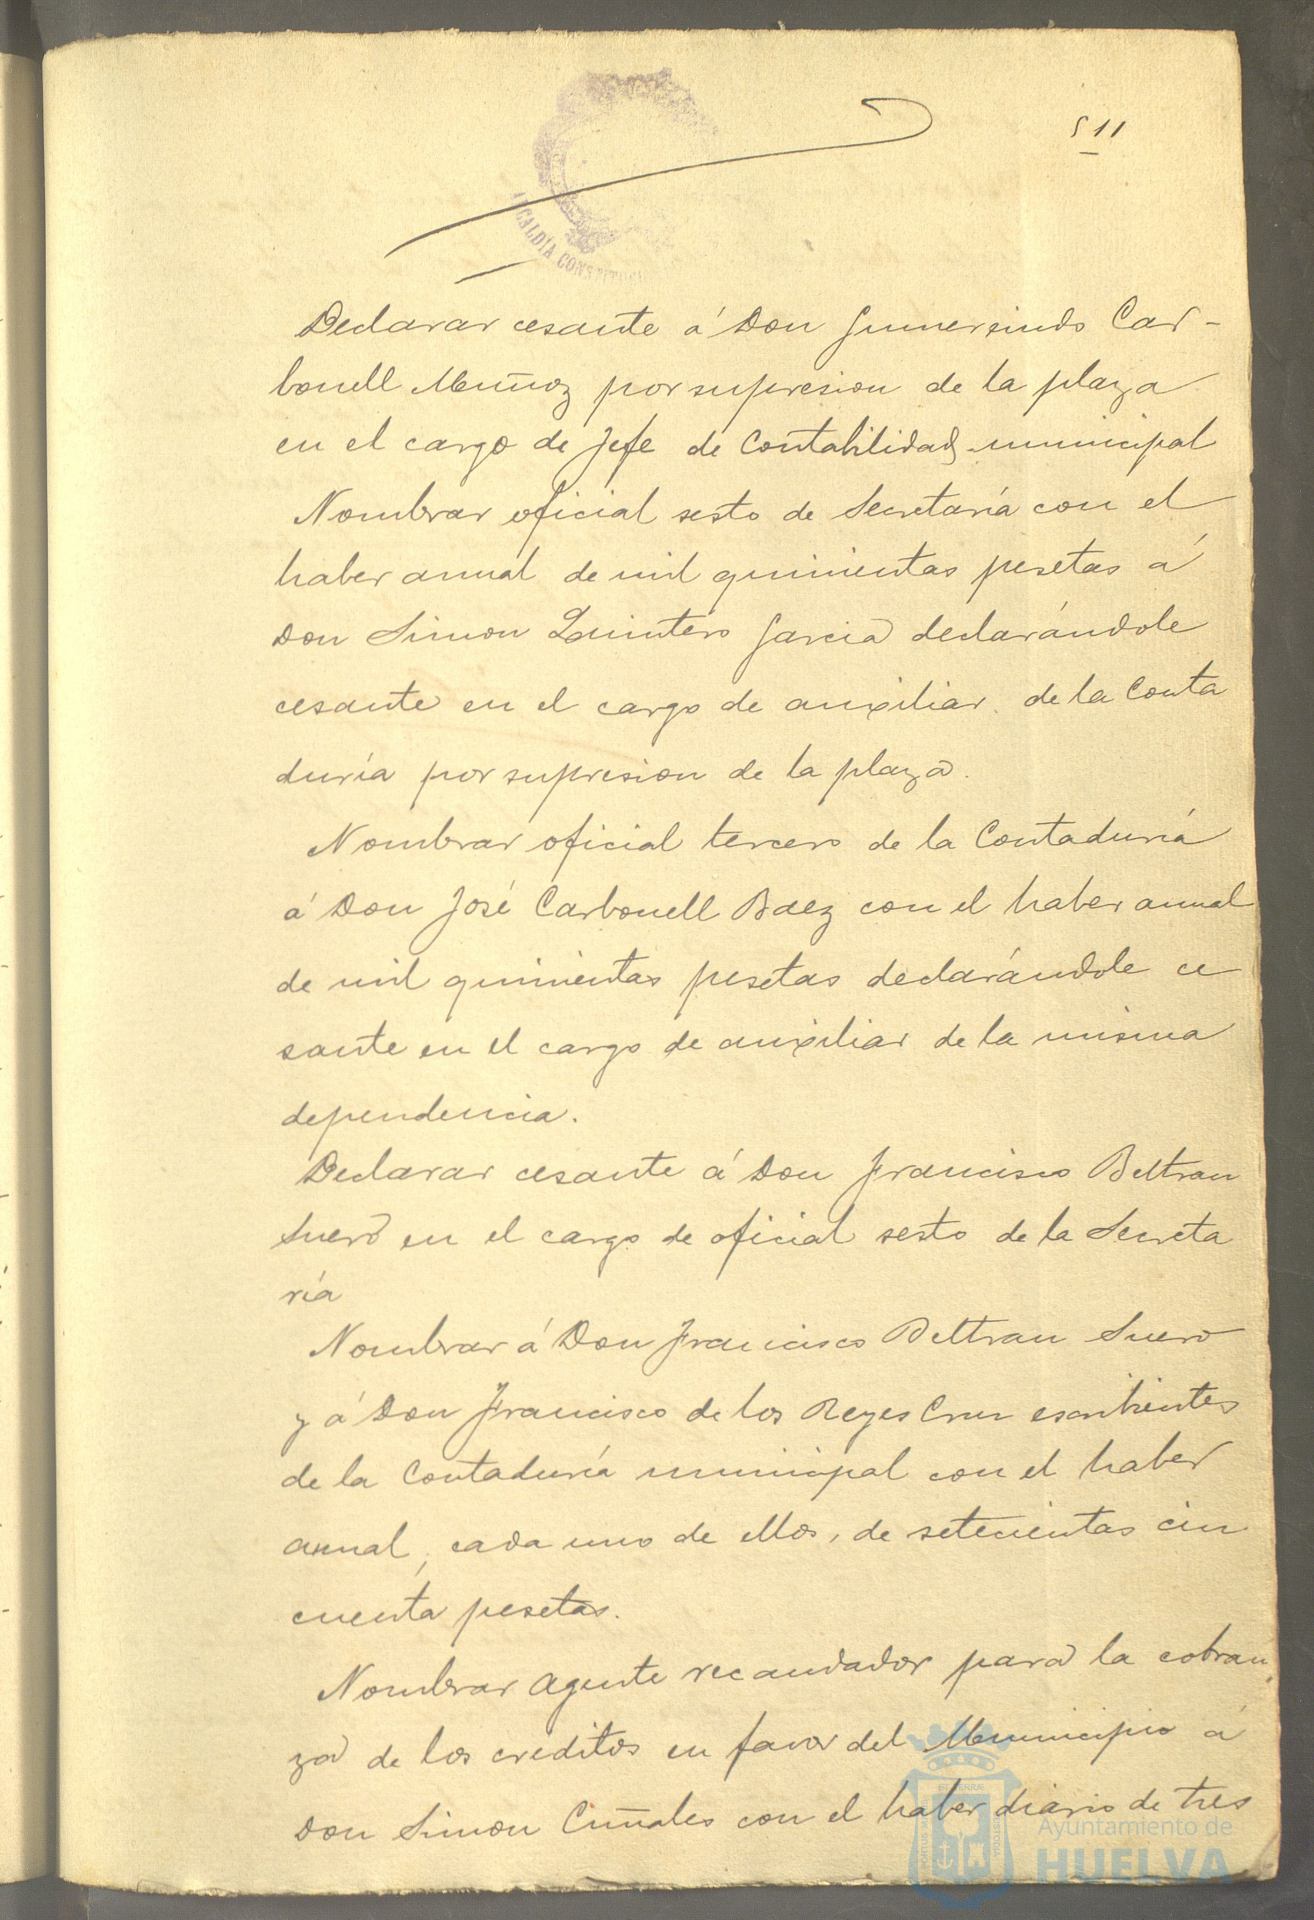 511
ALCALDÍA CONSTITUCI
Declarar cesante á Don Gumersindo Car-
bonell Muñoz por supresion de la plaza
en el cargo de Jefe de Contabilidad municipal
Nombrar oficial sesto de Secretaría con el
haber anual de mil quinientas pesetas á
Don Simon Quintero Garcia declarándole
cesante en el cargo de auxiliar de la Conta
duría por supresion de la plaza.
Nombrar oficial tercero de la Contaduría
á Don José Carbonell Baez con el haber anual
de mil quinientas pesetas declarándole ce
sante en el cargo de auxiliar de la misma
dependencia.
Declarar cesante á Don Francisco Beltran
Suero en el cargo de oficial sesto de la Secreta
ría
Nombrar á Don Francisco Beltran Suero
y á Don Francisco de los Reyes Cruz escribientes
de la Contaduría municipal con el haber
anual, cada uno de ellos, de setecientas cin
cuenta pesetas.
Nombrar Agente recaudador para la cobran
za de los creditos en favor del Municipio á
Don Simon Ciñales con el haber diario de tres
Ayuntamiento de
HUELVA